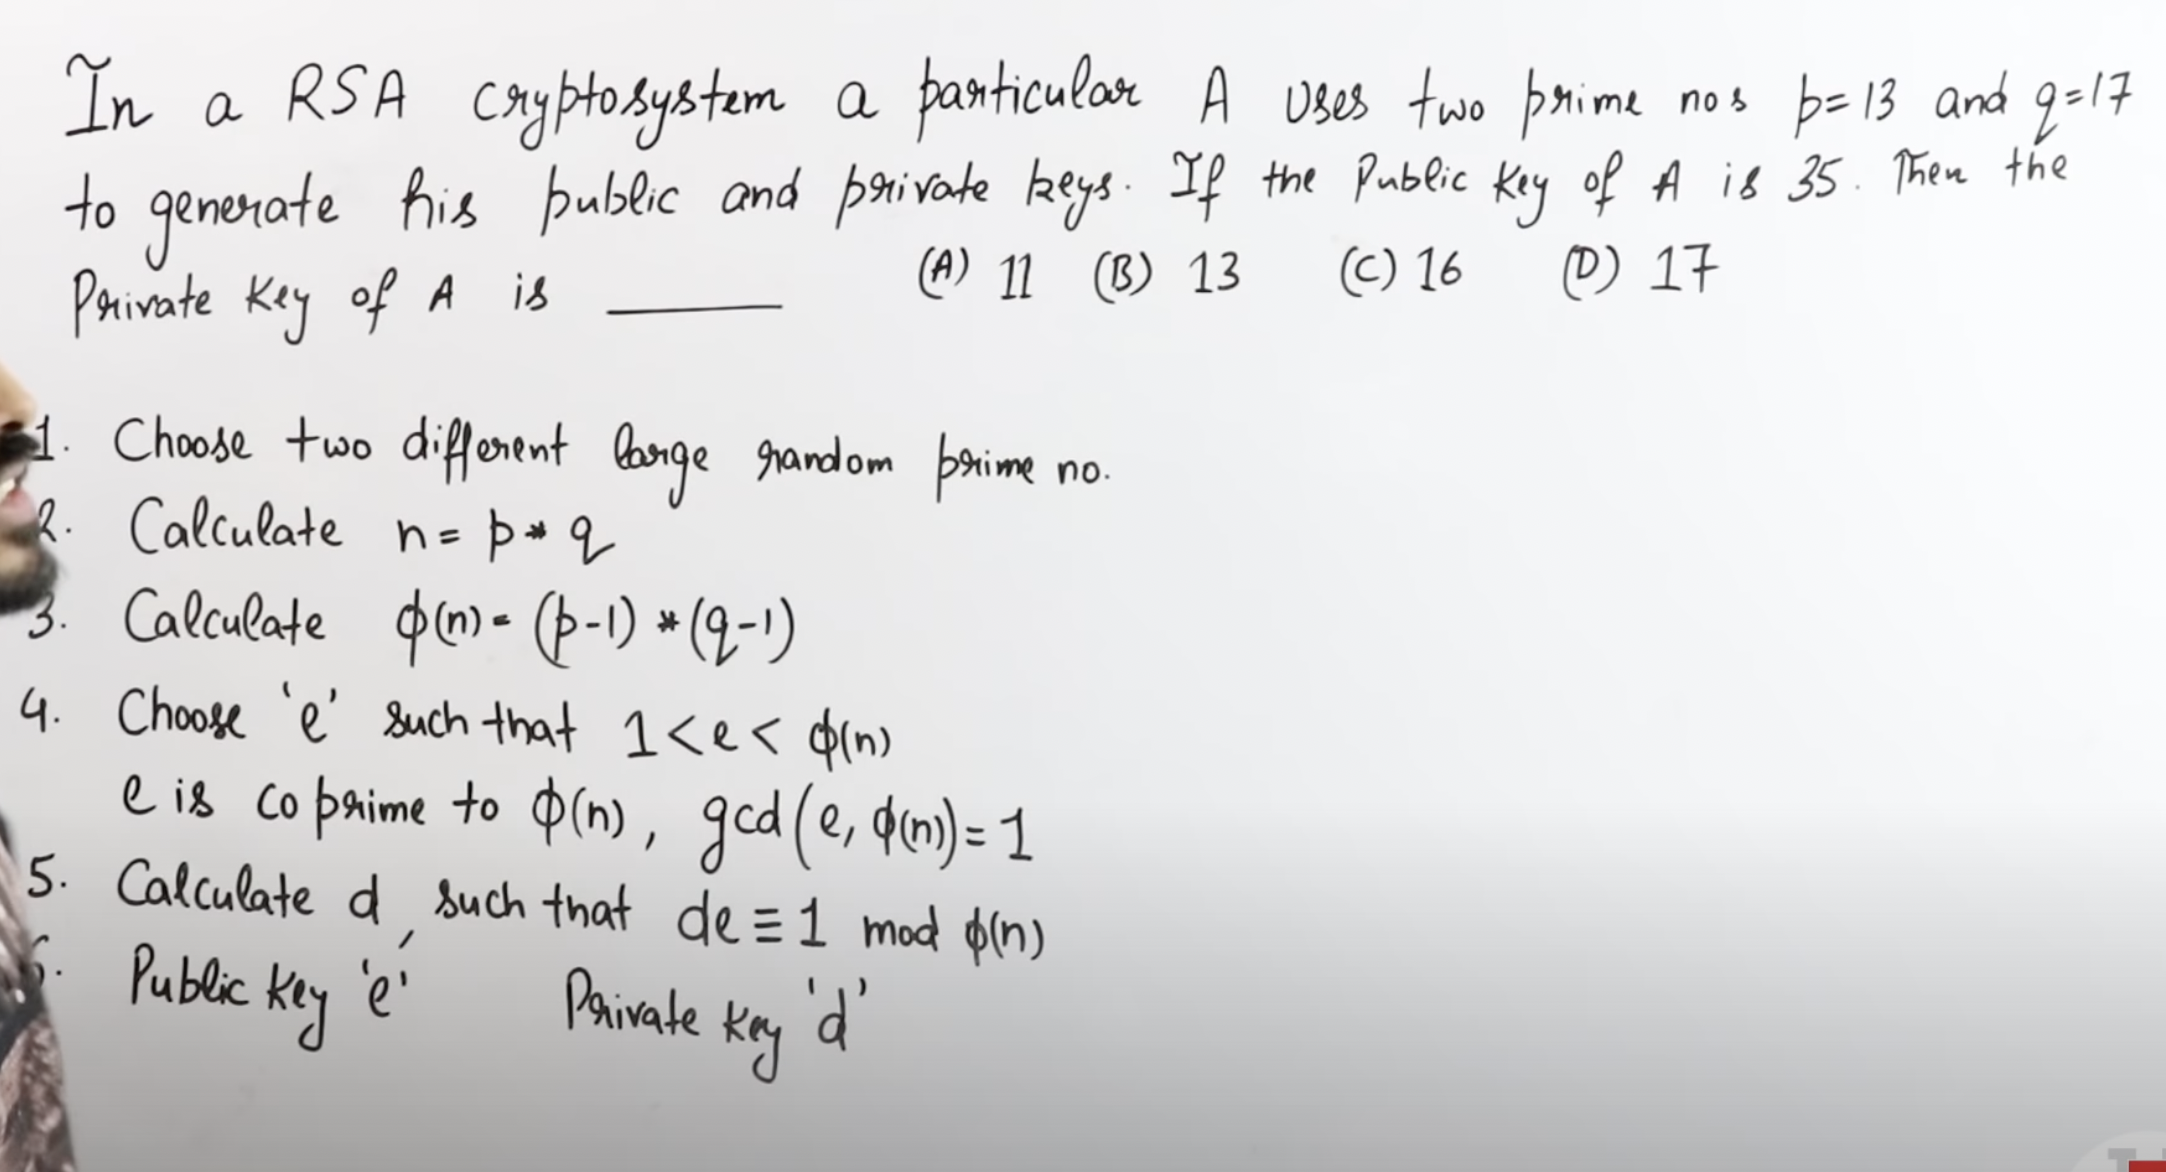 In a RSA cryptosystem a particular A uses two prime nos p=13 and q=17
to generate his public and private keys. If the Public Key of A is 35. Then the
Private Key of A is ______ (A) 11 (B) 13 (C) 16 (D) 17
1. Choose two different large random prime no.
2. Calculate n = p * q
3. Calculate ϕ(n) = (p-1) * (q-1)
4. Choose 'e' such that 1 < e < ϕ(n)
e is co prime to ϕ(n), gcd(e, ϕ(n)) = 1
5. Calculate d, such that de ≡ 1 mod ϕ(n)
Public Key 'e' Private Key 'd'